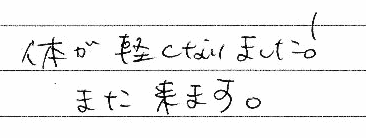 体が軽くなりました!
また来ます。